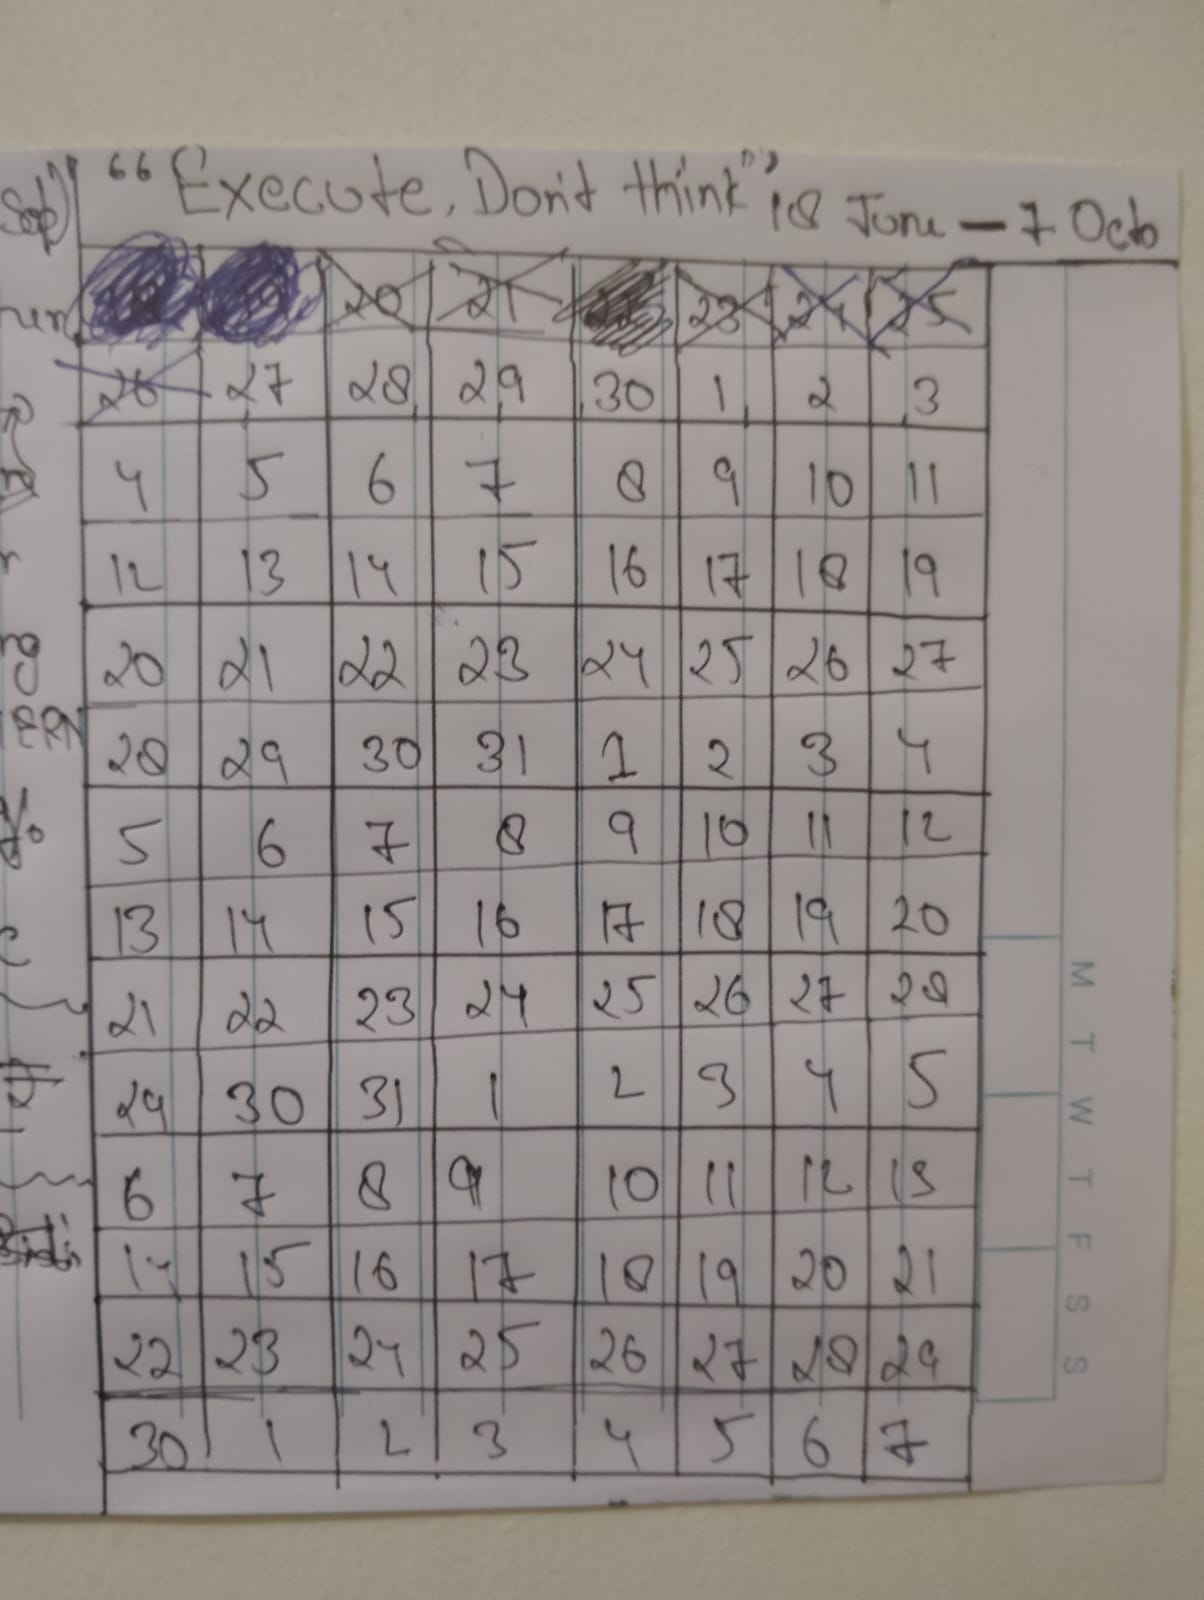 "Execute, Don't think" 18 June - 7 Octo
20 21 23 24 25
26 27 28 29 30 1 2 3
4 5 6 7 8 9 10 11
12 13 14 15 16 17 18 19
20 21 22 23 24 25 26 27
28 29 30 31 1 2 3 4
5 6 7 8 9 10 11 12
13 14 15 16 17 18 19 20
21 22 23 24 25 26 27 28
29 30 31 1 2 3 4 5
6 7 8 9 10 11 12 13
14 15 16 17 18 19 20 21
22 23 24 25 26 27 28 29
30 1 2 3 4 5 6 7
M T W T F S S